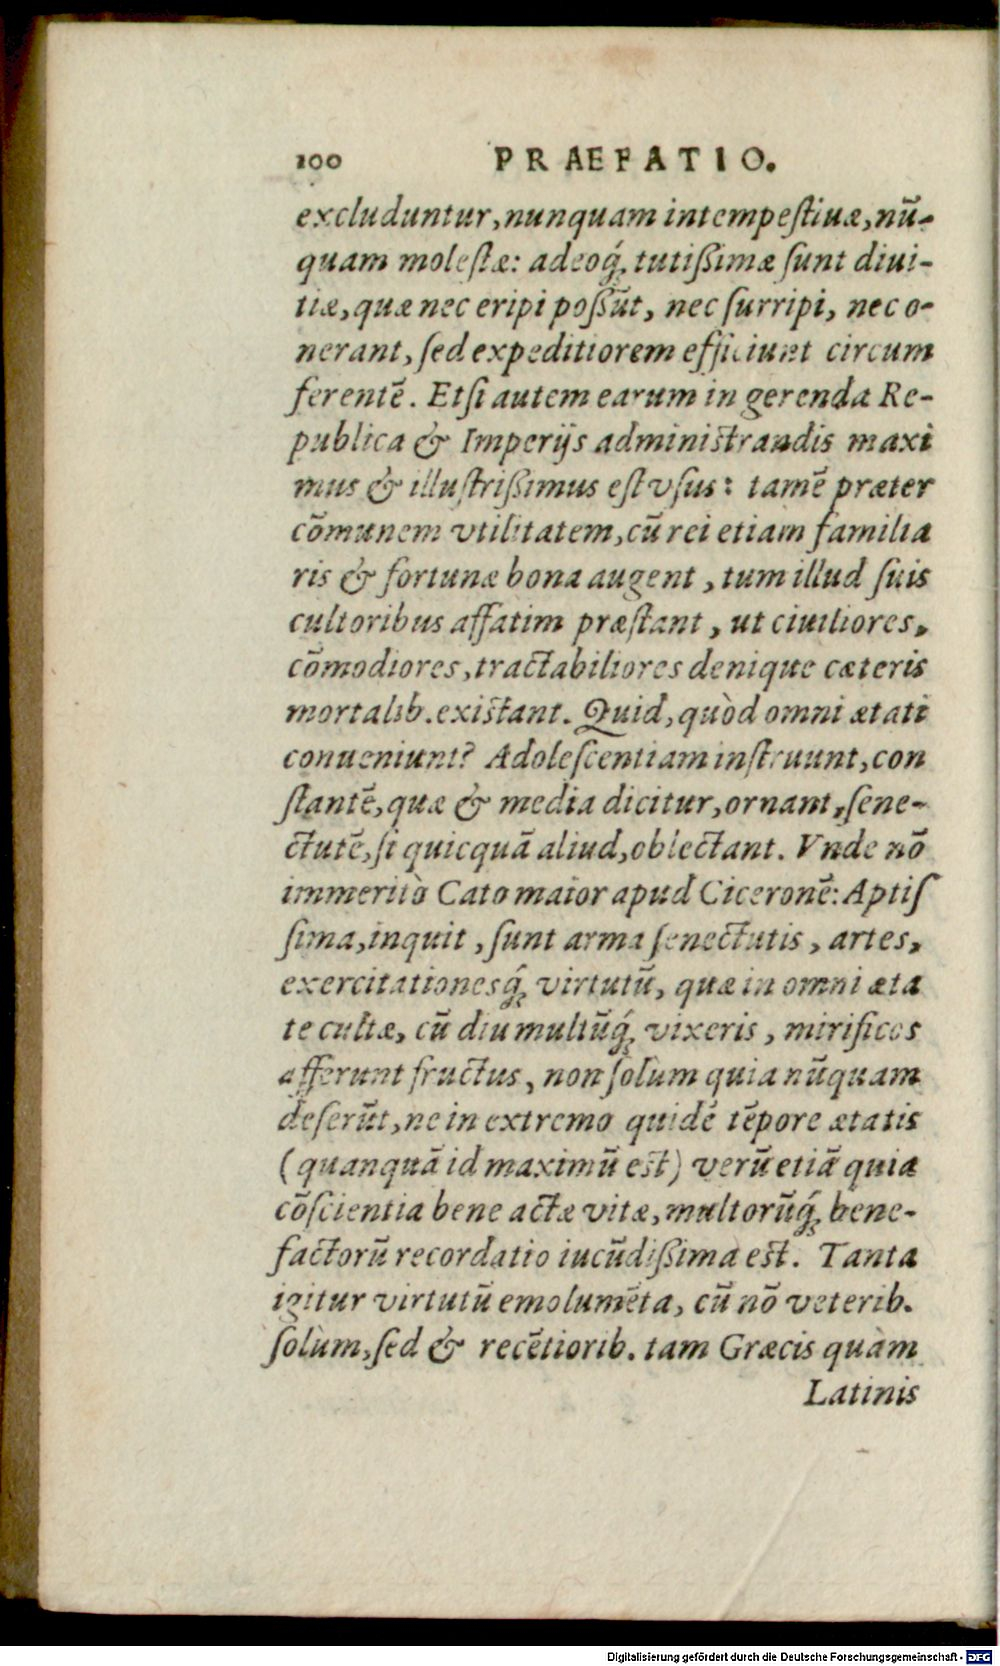 100 PRAEFATIO.
excluduntur, nunquam intempeſtiuæ, nū-
quam moleſtæ: adeoq́; tutiſſimæ ſunt diui-
tiæ, quæ nec eripi poſſūt, nec ſurripi, nec o-
nerant, ſed expeditiorem efficiunt circum
ferentē. Etſi autem earum in gerenda Re-
publica & Imperijs adminiſtrandis maxi
mus & illuſtriſſimus eſt vſus: tamē præter
cōmunem vtilitatem, cū rei etiam familia
ris & fortunæ bona augent, tum illud ſuis
cultoribus affatim præſtant, ut ciuiliores,
cōmodiores, tractabiliores denique cæteris
mortalib. exiſtant. Quid, quòd omni ætati
conueniunt? Adoleſcentiam inſtruunt, con
ſtantē, quæ & media dicitur, ornant, ſene-
ctutē, ſi quicquā aliud, oblectant. Vnde nō
immeritò Cato maior apud Ciceronē: Aptiſ
ſima, inquit, ſunt arma ſenectutis, artes,
exercitationesq́; virtutū, quæ in omni æta
te cultæ, cū diu multūq́; vixeris, mirificos
afferunt fructus, non ſolùm quia nūquam
deſerūt, ne in extremo quidē tēpore ætatis
(quanquā id maximū eſt) verū etiā quia
cōſcientia bene actæ vitæ, multorūq́; bene-
factorū recordatio iucūdiſſima eſt. Tanta
igitur virtutū emolumēta, cū nō veterib.
ſolùm, ſed & recētiorib. tam Græcis quàm
Latinis
Digitalisierung gefördert durch die Deutsche Forschungsgemeinschaft - DFG